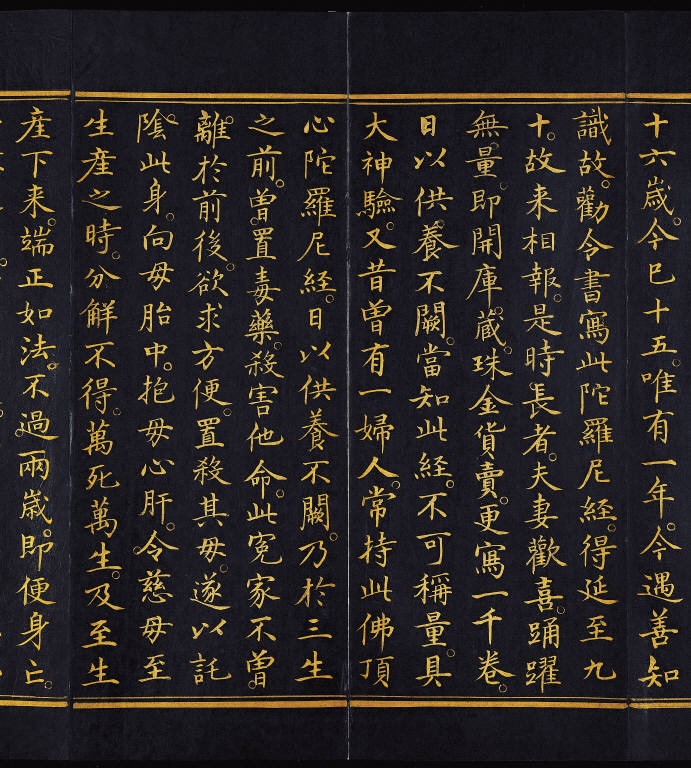 十六歲。今巳十五。唯有一年。今遇善知
識故。勸令書寫此陀羅尼經。得延至九
十。故来相報。是時長者。夫妻歡喜。踊躍
無量。即開庫藏。珠金貨賣。更寫一千卷。
日以供養不闕。當知此經。不可稱量。具
大神驗。又昔曽有一婦人。常持此佛頂
心陀羅尼經。日以供養不闕。乃於三生
之前。曽置毒藥。殺害他命。此冤家不曽
離於前後。欲求方便。置殺其毋。遂以託
陰此身。向毋胎中。抱毋心肝。令慈毋至
生産之時。分解不得。萬死萬生。及至生
産下来。端正如法。不過兩歲。即便身亡。